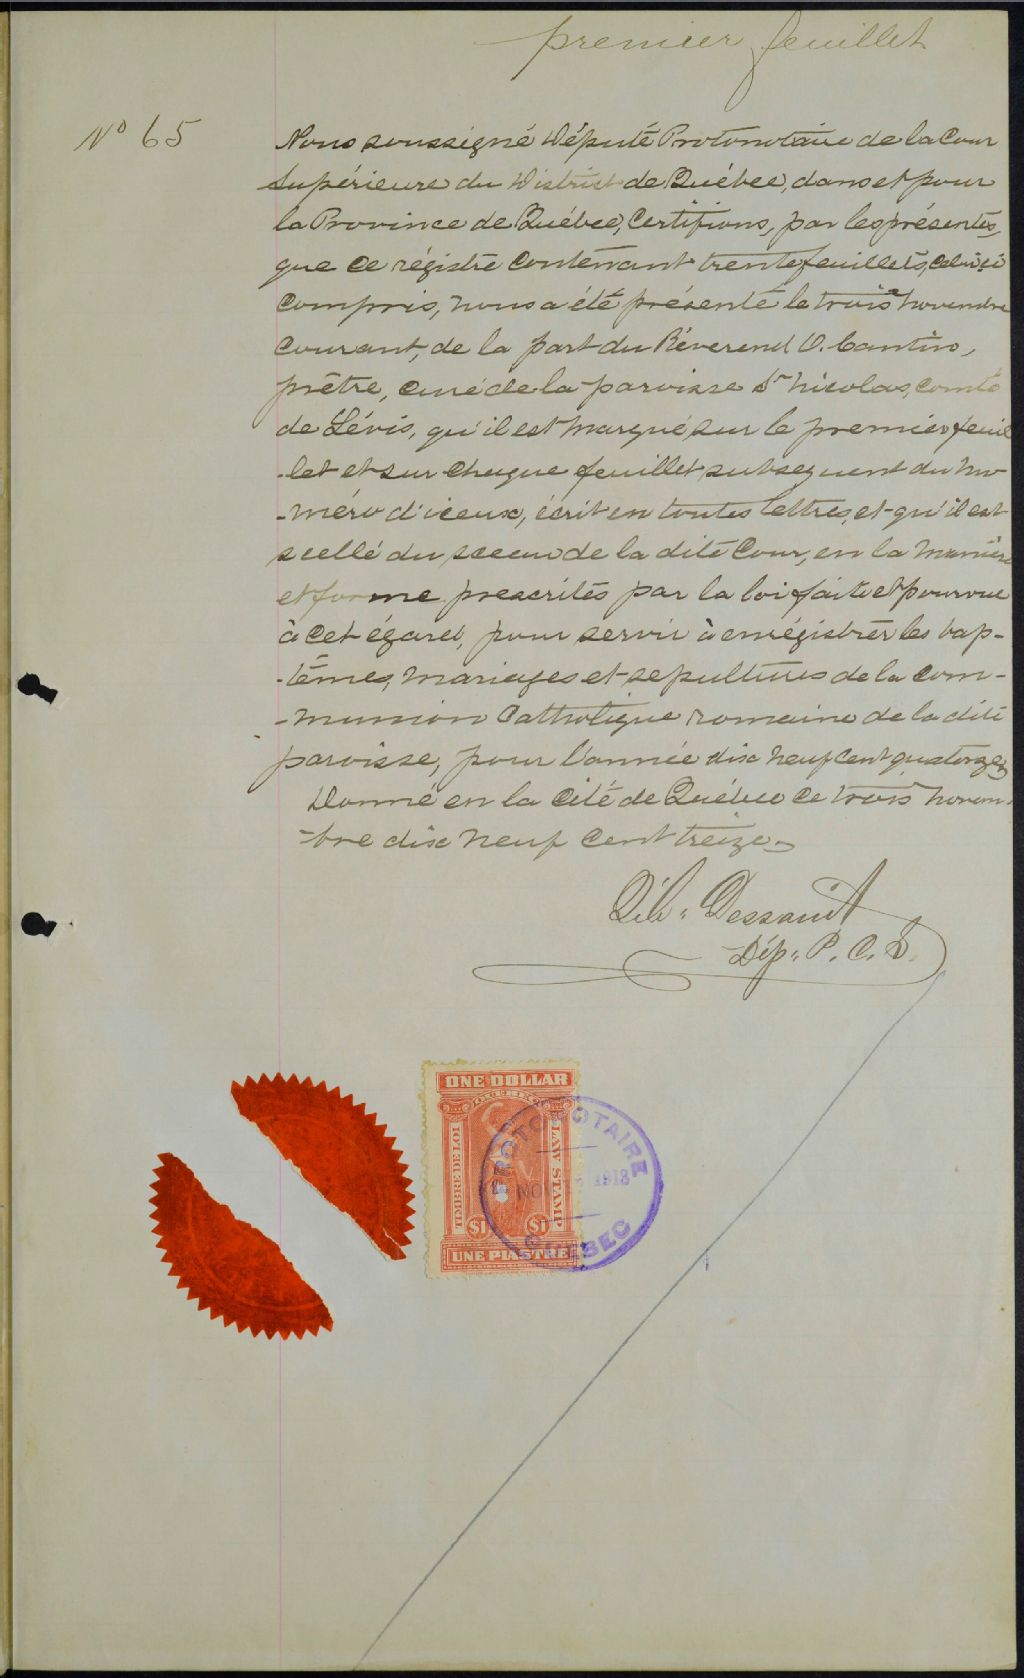 premier feuillet
N° 65
Nous soussigné Député Protonotaire de la Cour
Supérieure du District de Québec, dans et pour
la Province de Québec, Certifions, par les présentes,
que ce régistre contenant trente feuillets, celui-ci
compris, nous a été présenté le trois novembre
courant, de la part du Révérend O. Cantin,
prêtre, curé de la paroisse St Nicolas, comté
de Lévis, qu'il est marqué, sur le premier feuil
-let et sur chaque feuillet subsequent du nu-
-méro d'iceux, écrit en toutes lettres, et qu'il est
scellé du sceau de la dite Cour, en la manière
et forme prescrites par la loi faite et pourvue
à cet égard, pour servir à enrégistrer les bap-
-têmes, mariages et sepultures de la Com-
-munion Catholique romaine de la dite
paroisse, pour l'année dix neuf cent quatorze.
Donné en la Cité de Québec ce trois novem-
-bre dix neuf cent treize.
Dessault
Dép. P. C. S.
ONE DOLLAR
QUEBEC
TIMBRE DE LOI
LAW STAMP
$1 $1
UNE PIASTRE
PROTONOTAIRE
NOV 3 1913
QUEBEC